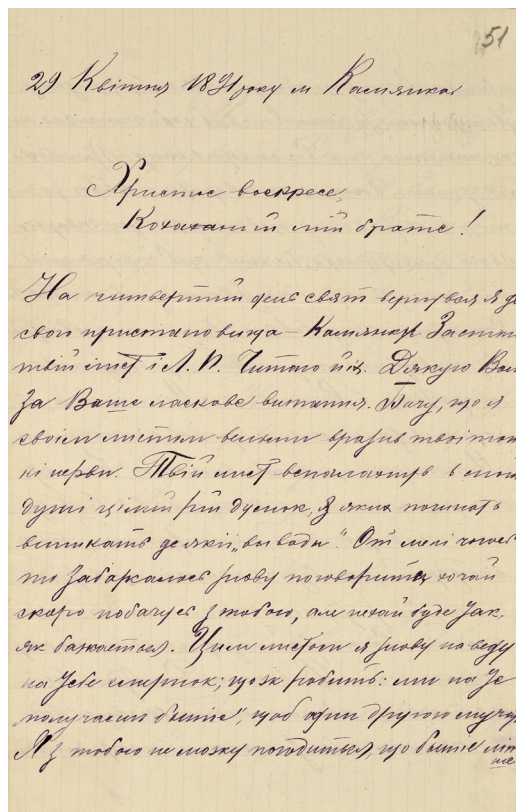 51
29 Квітня 1891 року м Камянка
Христос воскресе,
Коханий мій брате!
На читвертий день свят вернувся я до
свого пристановища – Камянки Застав
твій лист і Л. П. Читаю їх. Дякую Вам
За Ваше ласкаве витання. Бачу, що я
своїм листом вельми вразив твої тон
кі нерви. Твій лист в моїй
душі цілий рій думок, з яких починать
виникать деякі „выводы". От мені
забажалось знову поговорить хочай
скоро побачусь з тобою, але нехай буде так,
як бажається. Цим листом я знову наведу
на тебе смуток; що ж робить: ми на те
получаєм бытіє", щоб один другого мучить
Я з тобою не можу погодиться, що бытіє